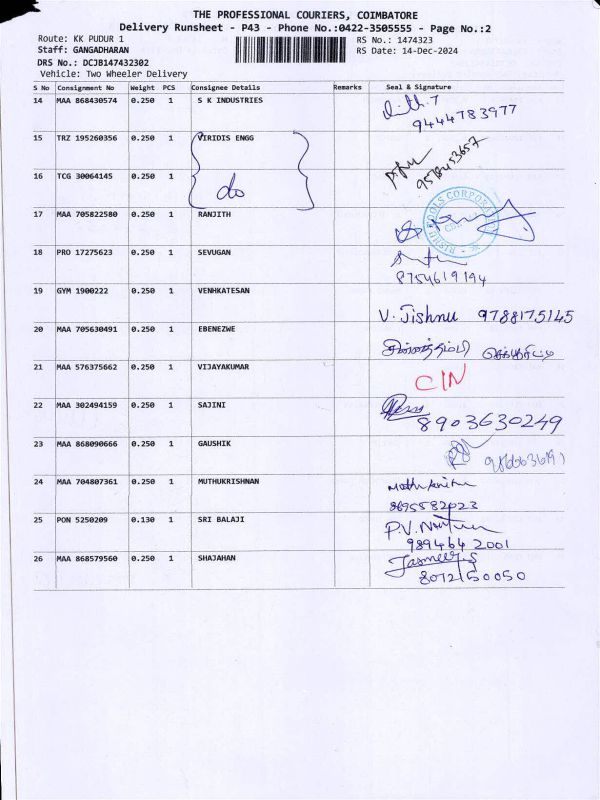 THE PROFESSIONAL COURIERS, COIMBATORE
Delivery Runsheet - P43 - Phone No.:0422-3505555 - Page No.:2
Route: KK PUDUR 1 RS No.: 1474323
Staff: GANGADHARAN RS Date: 14-Dec-2024
DRS No.: DCJB147432302
Vehicle: Two Wheeler Delivery
S No Consignment No Weight PCS Consignee Details Remarks Seal & Signature
14 MAA 868430574 0.250 1 S K INDUSTRIES
9444783977
15 TRZ 195260356 0.250 1 VIRIDIS ENGG
9578453657
16 TCG 30064145 0.250 1 do
17 MAA 705822580 0.250 1 RANJITH
18 PRO 17275623 0.250 1 SEVUGAN
8754619194
19 GYM 1900222 0.250 1 VENHKATESAN
V. Jishnu 9788175145
20 MAA 705630491 0.250 1 EBENEZWE
21 MAA 576375662 0.250 1 VIJAYAKUMAR
CIN
22 MAA 302494159 0.250 1 SAJINI
8903630249
23 MAA 868090666 0.250 1 GAUSHIK
24 MAA 704807361 0.250 1 MUTHUKRISHNAN
8695582023
25 PON 5250209 0.130 1 SRI BALAJI
P.V.
9894642001
26 MAA 868579560 0.250 1 SHAJAHAN
8072150050